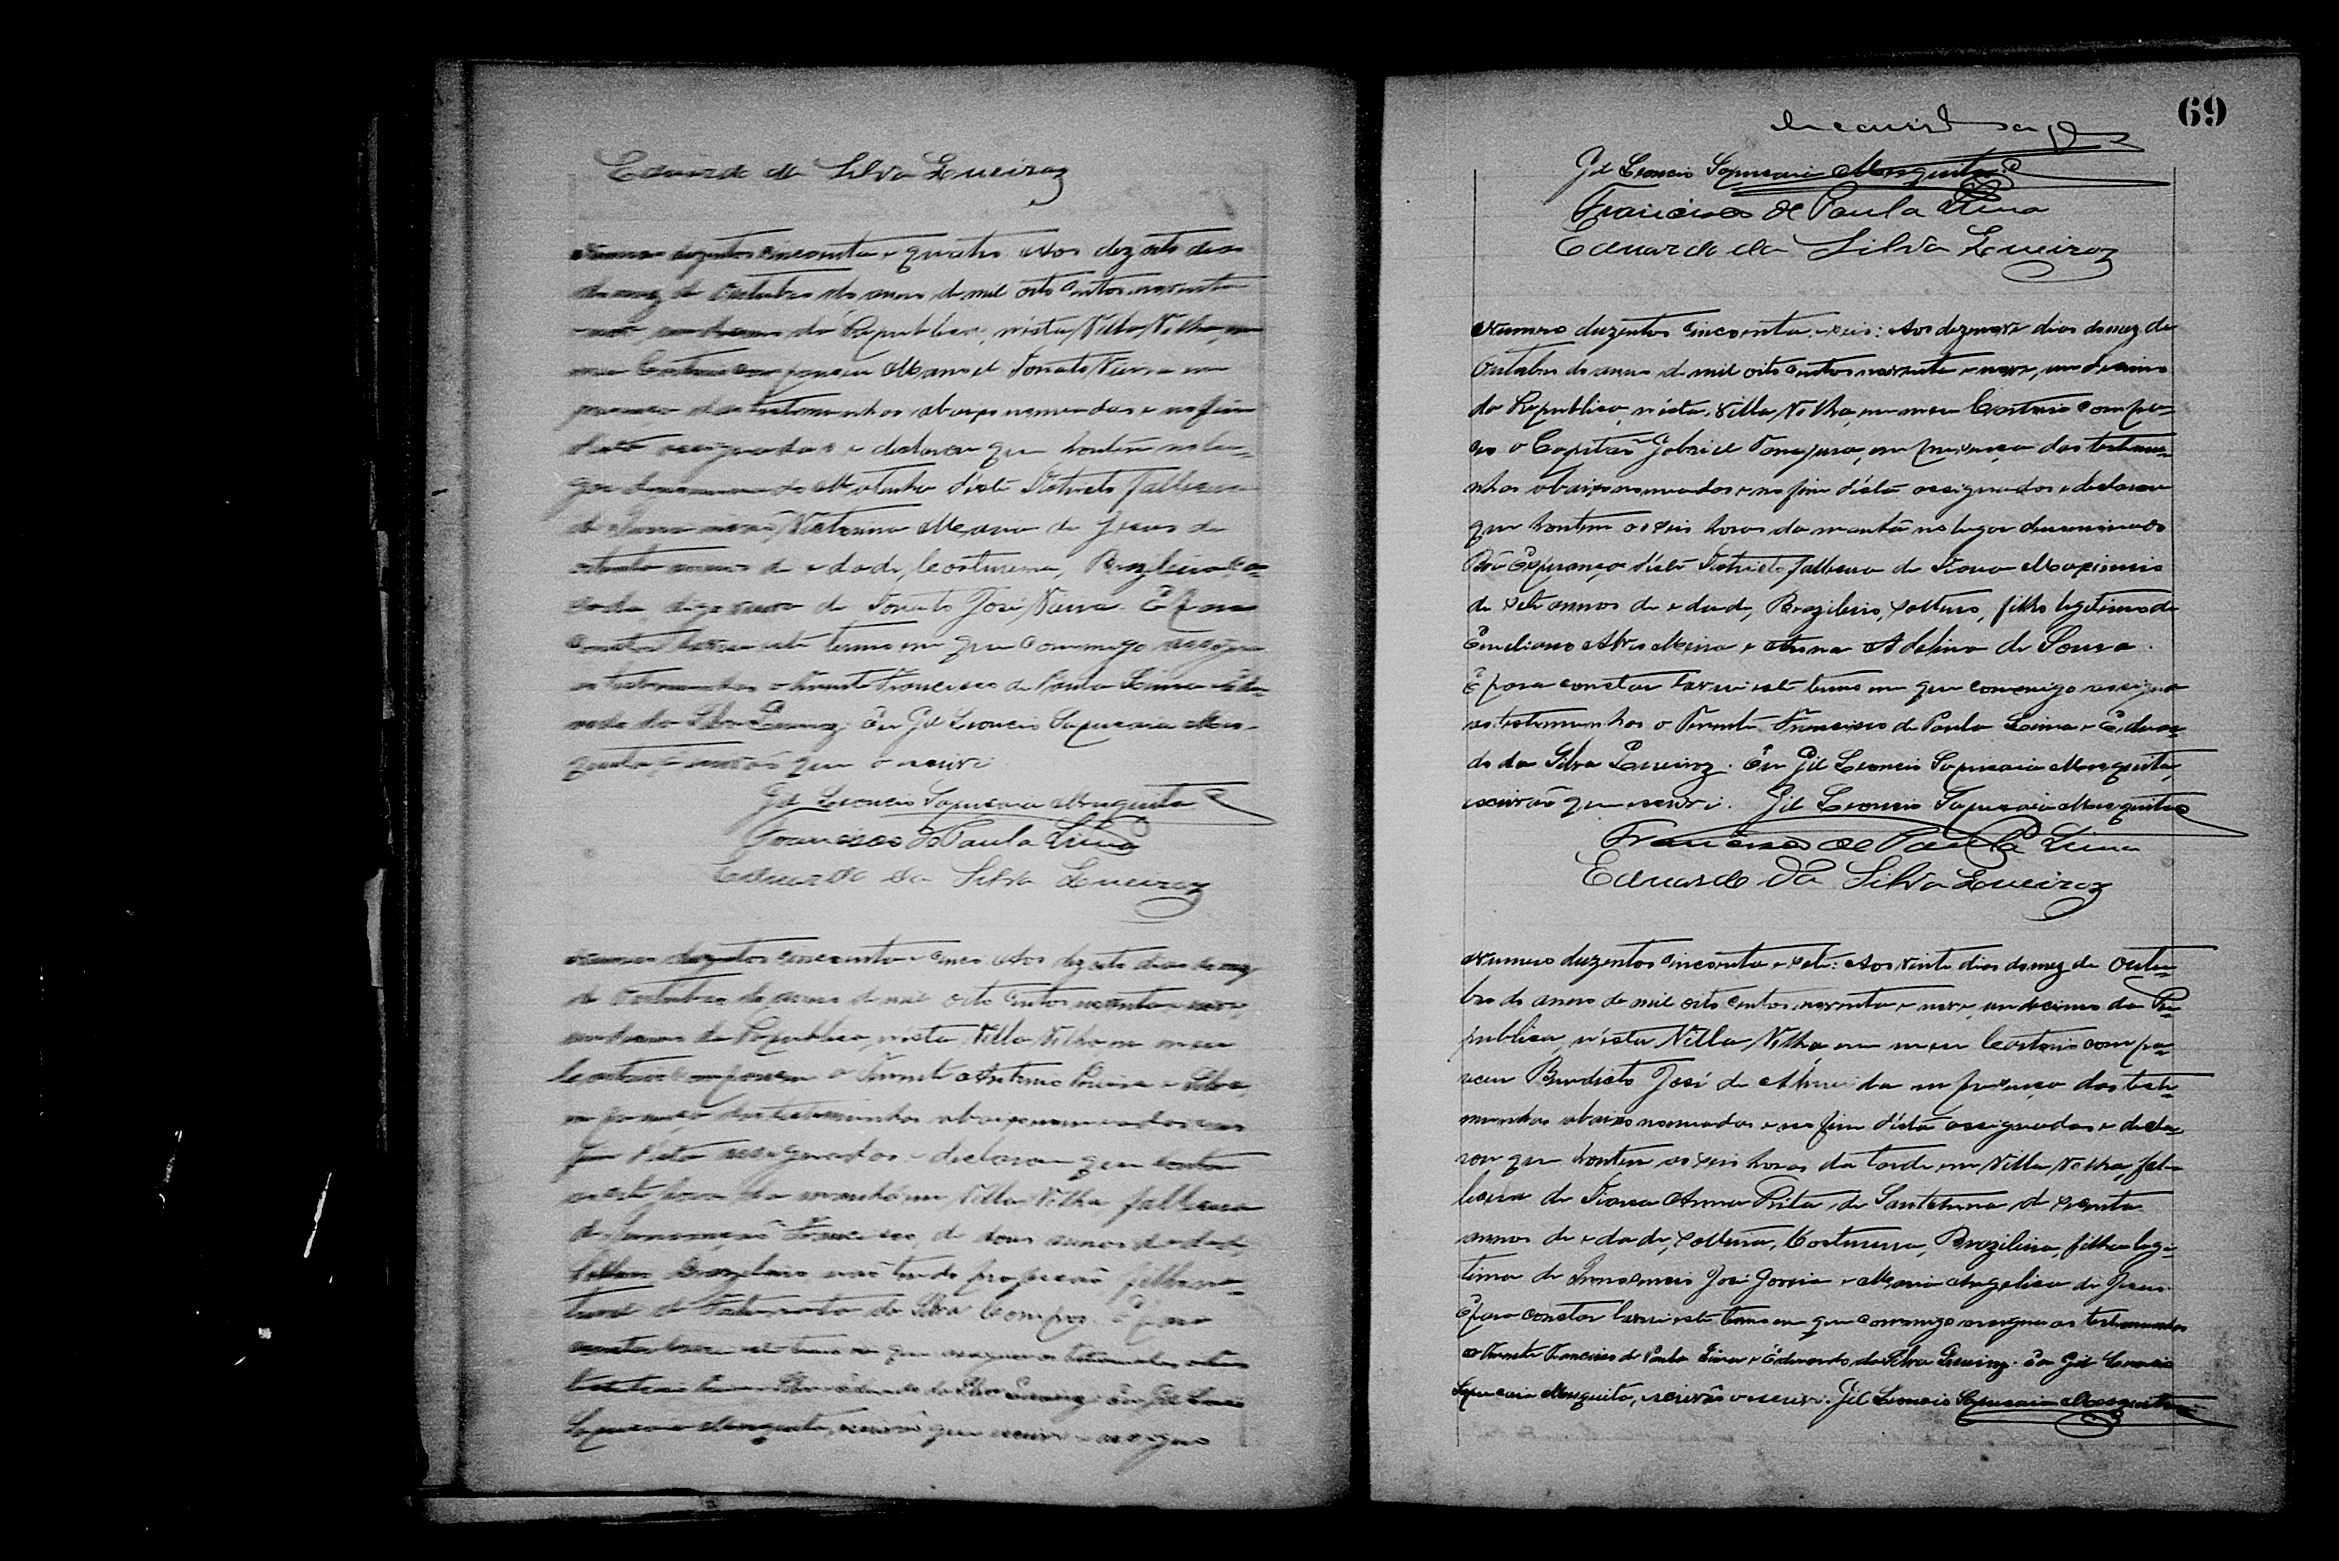 Eduardo da Silva Queiroz
Numero duzentos cincoenta e quatro Aos dezoito dias
do mez de Outubro do anno de mil oito centos noventa
da Republica, nésta Villa Velha, em
meu Cartorio Manoel Donato Vieira em
presença das testemunhas abaixo nomeadas e no fim
désta assignadas e declarou que hontem no lu-
gar déste Districto falleceu
Victorina Maria de Jesus de
oitenta annos de edade, Costureira, Brazileira, ca-
sada, digo viuva de Donato José Vieira. E para
constar lavrei este termo em que commigo assigna
as testemunhas o Tenente Francisco de Paula Lima e Edu-
ardo da Silva Queiroz. Eu Gil Leoncio Sapucaia Mes-
quita, escrivão que o escrevi
Gil Leoncio Sapucaia Mesquita
Francisco de Paula Lima
Eduardo da Silva Queiroz
Numero duzentos cincoenta e cinco Aos dezoito dias do mez
de Outubro do anno de mil oito centos noventa e nove,
undecimo da Republica, nésta Villa Velha em meu
Cartorio compareceu o Tenente Antonio Pereira e Silva,
em presença das testemunhas abaixo nomeadas e no
fim désta assignadas e declarou que hontem
as sete horas da manhã em Villa Velha falleceu
Francisco, de dous annos de edade,
Brazileiro não tendo profissão filho na-
tural de da Silva Campos. E para
constar lavrei este termo em que assigna as testemunhas
Eduardo da Silva Queiroz. Eu Gil Leoncio
Sapucaia Mesquita, escrivão que escrevi e assigno
69
Gil Leoncio Sapucaia Mesquita
Francisco de Paula Lima
Eduardo da Silva Queiroz
Numero duzentos cincoenta e seis: Aos dezenove dias do mez de
Outubro do anno de mil oito centos noventa e nove, undecimo
da Republica, nésta Villa Velha, em meu Cartorio compare-
ceu o Capitão Gabriel Tanajura, em presença das testemu-
nhas abaixo nomeadas e no fim désta assignadas e declarou
que hontem as seis horas da manhã no lugar denominado
Bôa Esperança déste Districto falleceu de Maximino
de sete annos de edade, Brazileiro, solteiro, filho legitimo de
Emiliano Alves Meira e Anna Adelina de Sousa.
E para constar lavrei este termo em que commigo assigna
as testemunhas o Tenente Francisco de Paula Lima e Eduar-
do da Silva Queiroz. Eu Gil Leoncio Sapucaia Mesquita,
escrivão que escrevi. Gil Leoncio Sapucaia Mesquita
Francisco de Paula Lima
Eduardo da Silva Queiroz
Numero duzentos cincoenta e sete: Aos vinte dias do mez de Outu-
bro do anno de mil oito centos noventa e nove, undecimo da Re-
publica, nésta Villa Velha em meu Cartorio compa-
receu Benedicto José de Almeida em presença das teste-
munhas abaixo nomeadas e no fim désta assignadas e decla-
rou que hontem as seis horas da tarde em Villa Velha, fal-
leceu de Anna Rita de Santanna de
annos de edade, solteira, Costureira, Brazileira, filha legi-
tima de Innocencio José Garcia e Maria Angelica de Jesus
E para constar lavrei este termo em que commigo assigna as testemunhas
o Tenente Francisco de Paula Lima e Eduardo da Silva Queiroz. Eu Gil Leoncio
Sapucaia Mesquita, escrivão o escrevi. Gil Leoncio Sapucaia Mesquita